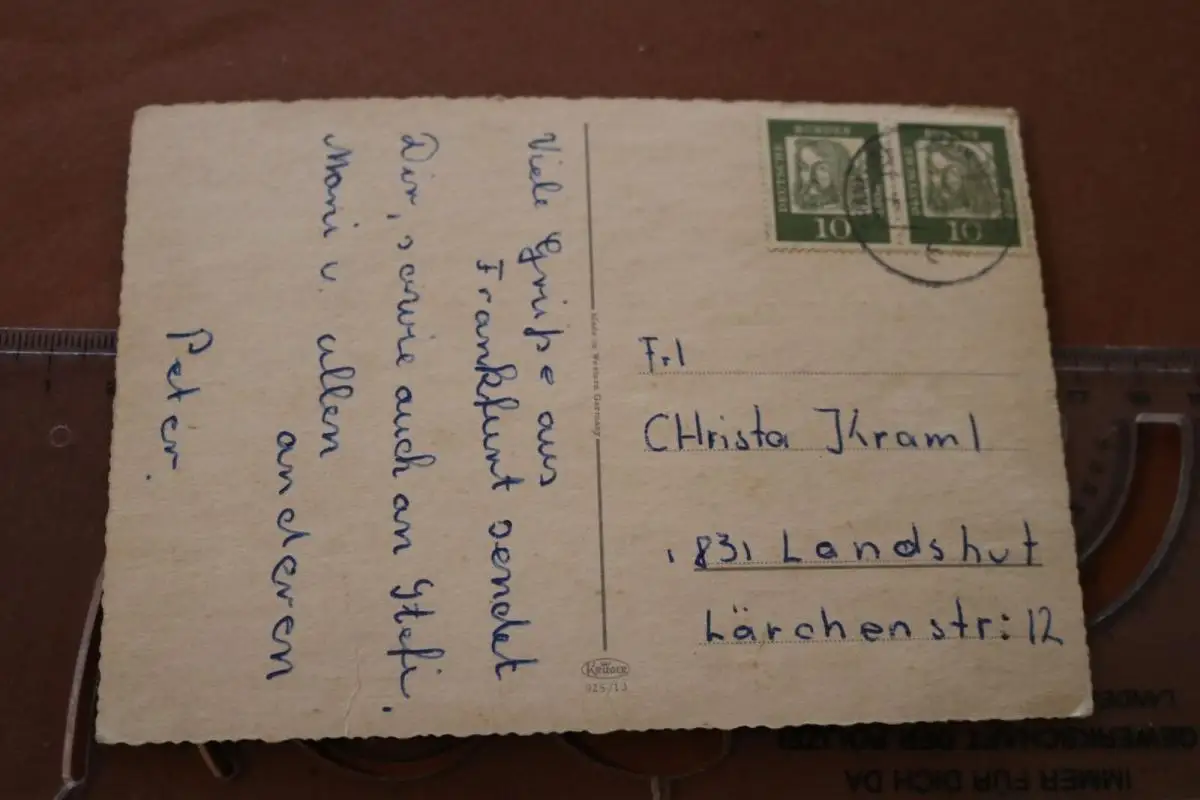 Viele Grüße aus
Frankfurt sendet
Dir, sowie auch an Stefi,
Moni u. allen
anderen
Peter.
Made in Western Germany
KRÜGER
925/13
DEUTSCHE
10
10
Frl
CHrista Kraml
831 Landshut
Lärchenstr: 12
LANDES
GEWERKSCHAFT DER POLIZEI
IMMER FÜR DICH DA